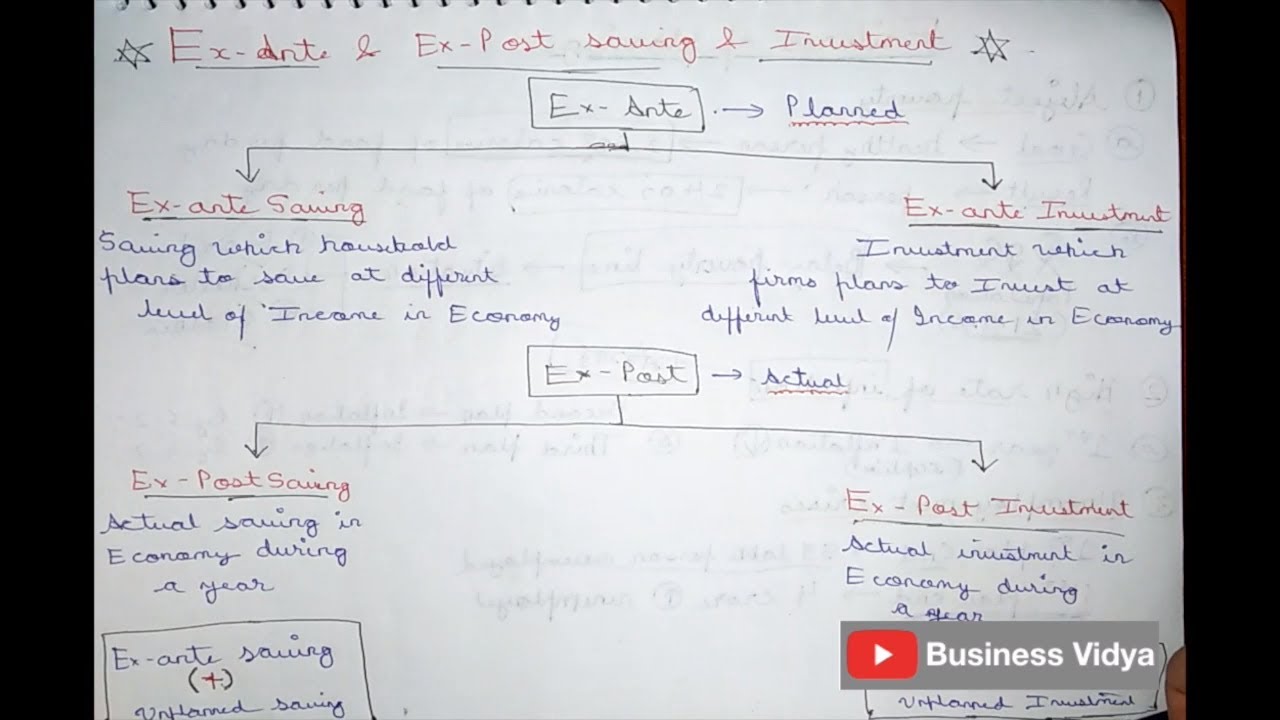 Ex-Ante & Ex-Post saving & Investment
Ex-Ante → Planned
Ex-ante Saving
Saving which household
plans to save at different
level of Income in Economy
Ex-ante Investment
Investment which
firms plans to Invest at
different level of Income in Economy
Ex-Post → Actual
Ex-Post Saving
Actual saving in
Economy during
a year
Ex-Post Investment
Actual investment in
Economy during
a year
Ex-ante saving
(+)
Unplanned saving
Business Vidya
Unplanned Investment